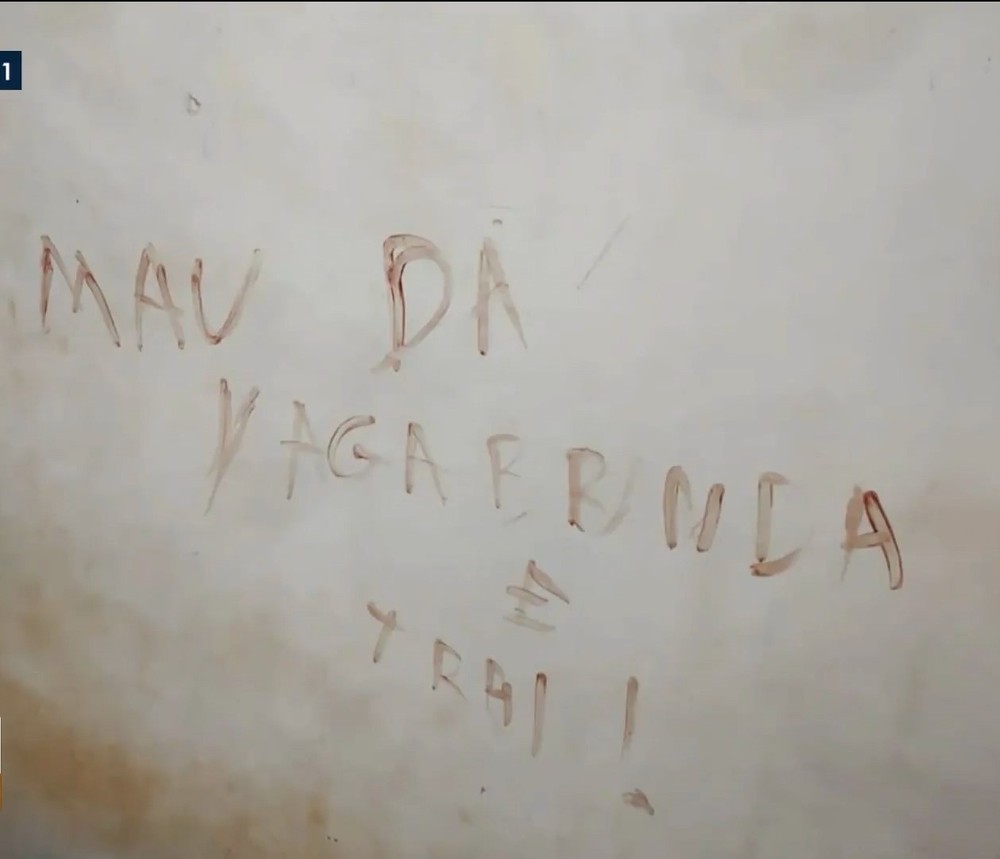 1
MAU DA
VAGABUNDA
É
TRAI!